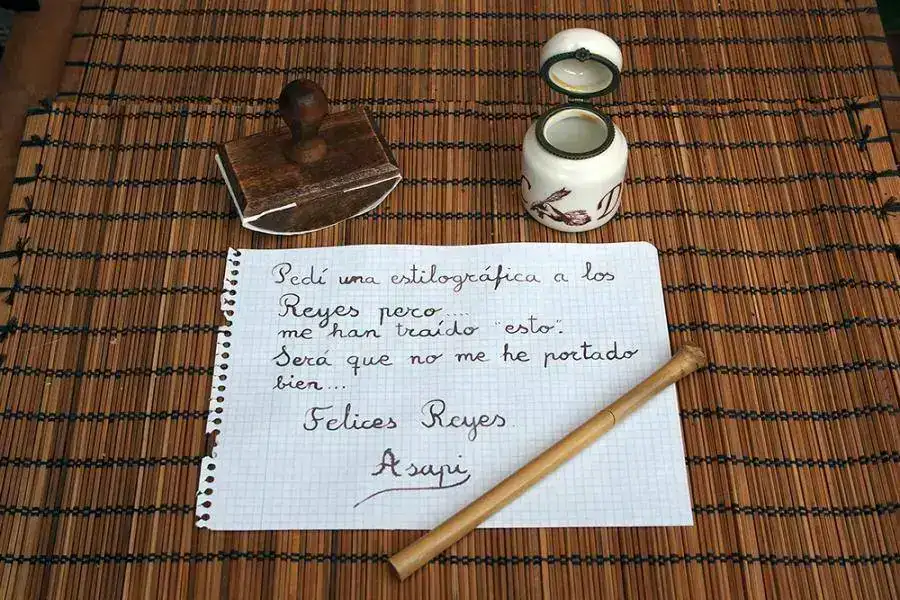 Pedí una estilográfica a los
Reyes pero....
me han traído "esto".
Será que no me he portado
bien...
Felices Reyes.
Asapi